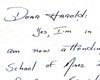 Dear Harold:
Yes, I'm in
am now a Headin
School of Mines